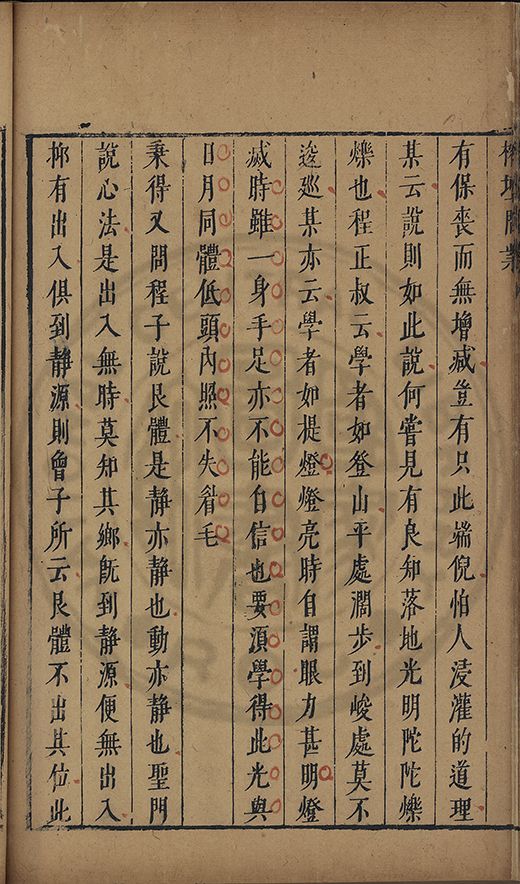 榕壇問業
有保喪而無增減豈有只此端倪怕人浸灌的道理
某云說則如此說何嘗見有良知落地光明陀陀爍
爍也程正叔云學者如登山平處濶步到峻處莫不
逡巡某亦云學者如提燈燈亮時自謂眼力甚明燈
滅時雖一身手足亦不能自信也要須學得此光與
日月同體低頭內照不失眉毛
秉得又問程子說艮體是靜亦靜也動亦靜也聖門
說心法是出入無時莫知其鄉旣到靜源便無出入
抑有出入俱到靜源則曾子所云艮體不出其位此